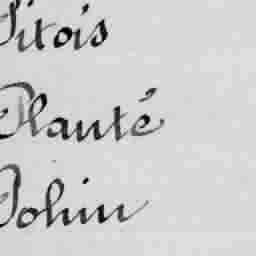 Pitois
Planté
Pohin